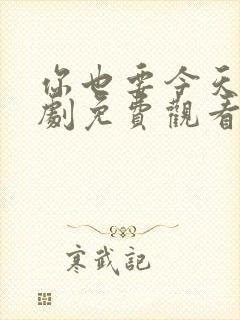 你也要今天
劇免費觀看
寒武記